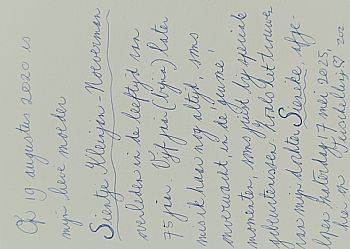 Op 19 augustus 2020 is
mijn lieve moeder
Sientje
overleden in de leeftijd van
75 jaar. Vijf jaar (bijna) later
mis ik haar nog altijd, soms
onverwacht, in de gewone
momenten, soms juist bij speciale
gebeurtenissen zoals het trouwen
van mijn dochter afge-
lopen zaterdag, 17 mei 2025,
hier